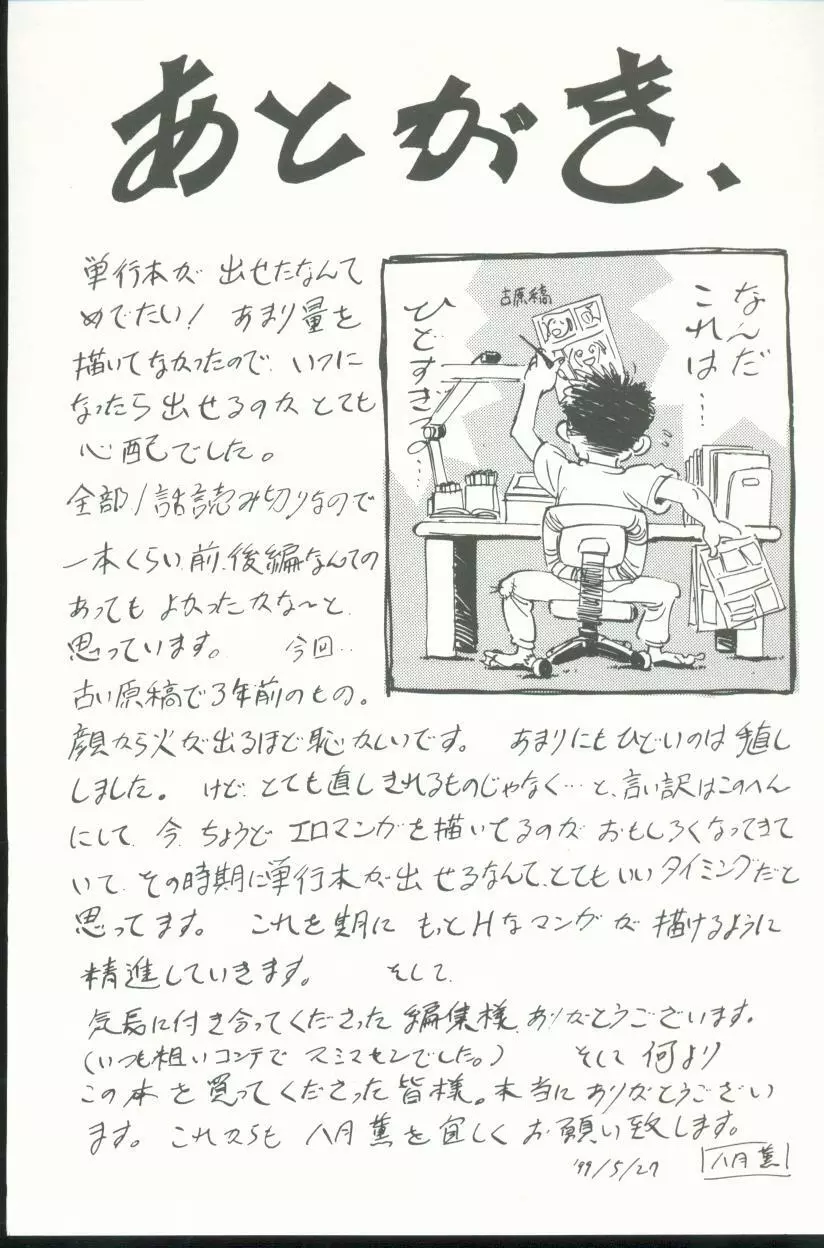 あとがき、
単行本が 出せたなんて
めでたい! あまり量を
描いてなかったので、いつに
なったら 出せるのか とても
心配でした。
全部1話読み切りなので
一本くらい、前、後編なんての
あっても よかったかな〜と、
思っています。 今回‥
古い原稿で3年前のもの。
なんだ
これは……
古原稿
ひどすぎるっ…
顔から火が出るほど恥かしいです。 あまりにもひどいのは 直し
しました。 けど、とても直しきれるものじゃなく…と、言い訳はこのへん
にして、今、ちょうど エロマンガを描いてるのが おもしろくなってきて
いて、その時期に単行本が出せるなんて、とてもいいタイミングだと
思ってます。 これを期に もっとHなマンガが 描けるように
精進していきます。 そして、
気長に付き合ってくださった 編集様、ありがとうございます。
(いつも粗いコンテで スミマセンでした。) そして 何より
この本を買ってくださった皆様。本当にありがとうござい
ます。これからも 八月薫を宜しく お願い致します。
'99/5/27 八月薫